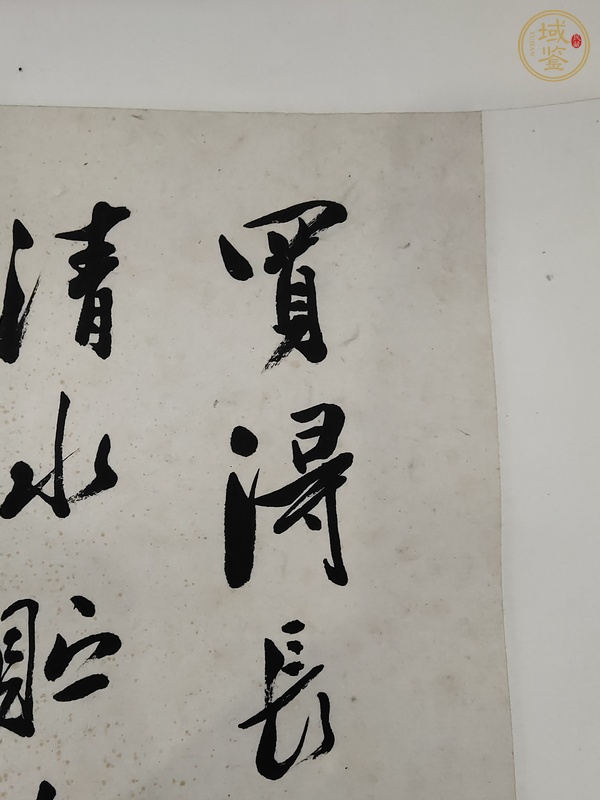 買得長
清水貯
域鉴